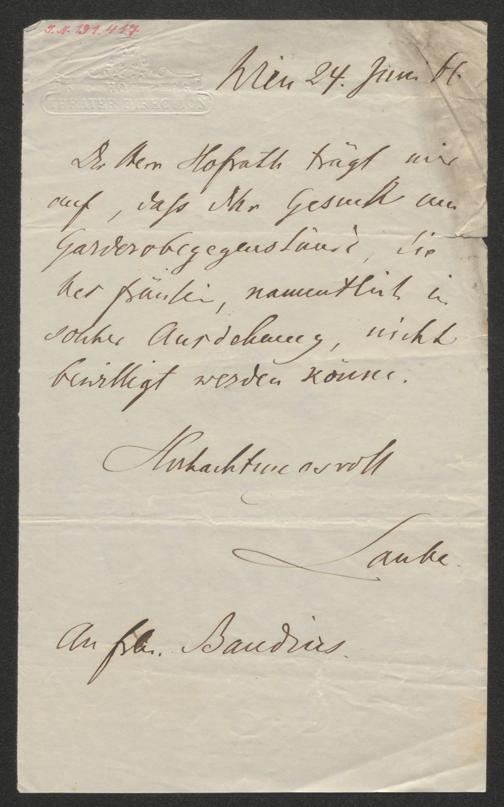 I.N. 191.417
THEATER DIRECTION
Wien 24. Juni 61.
Der Herr Hofrath trägt mir
auf, daß Ihr Gesuch um
Garderobegegenstände, die
der Fräulein, namentlich in
solcher Ausdehnung, nicht
bewilligt werden könne.
Hochachtungsvoll
Laube.
An frln. Baudius.